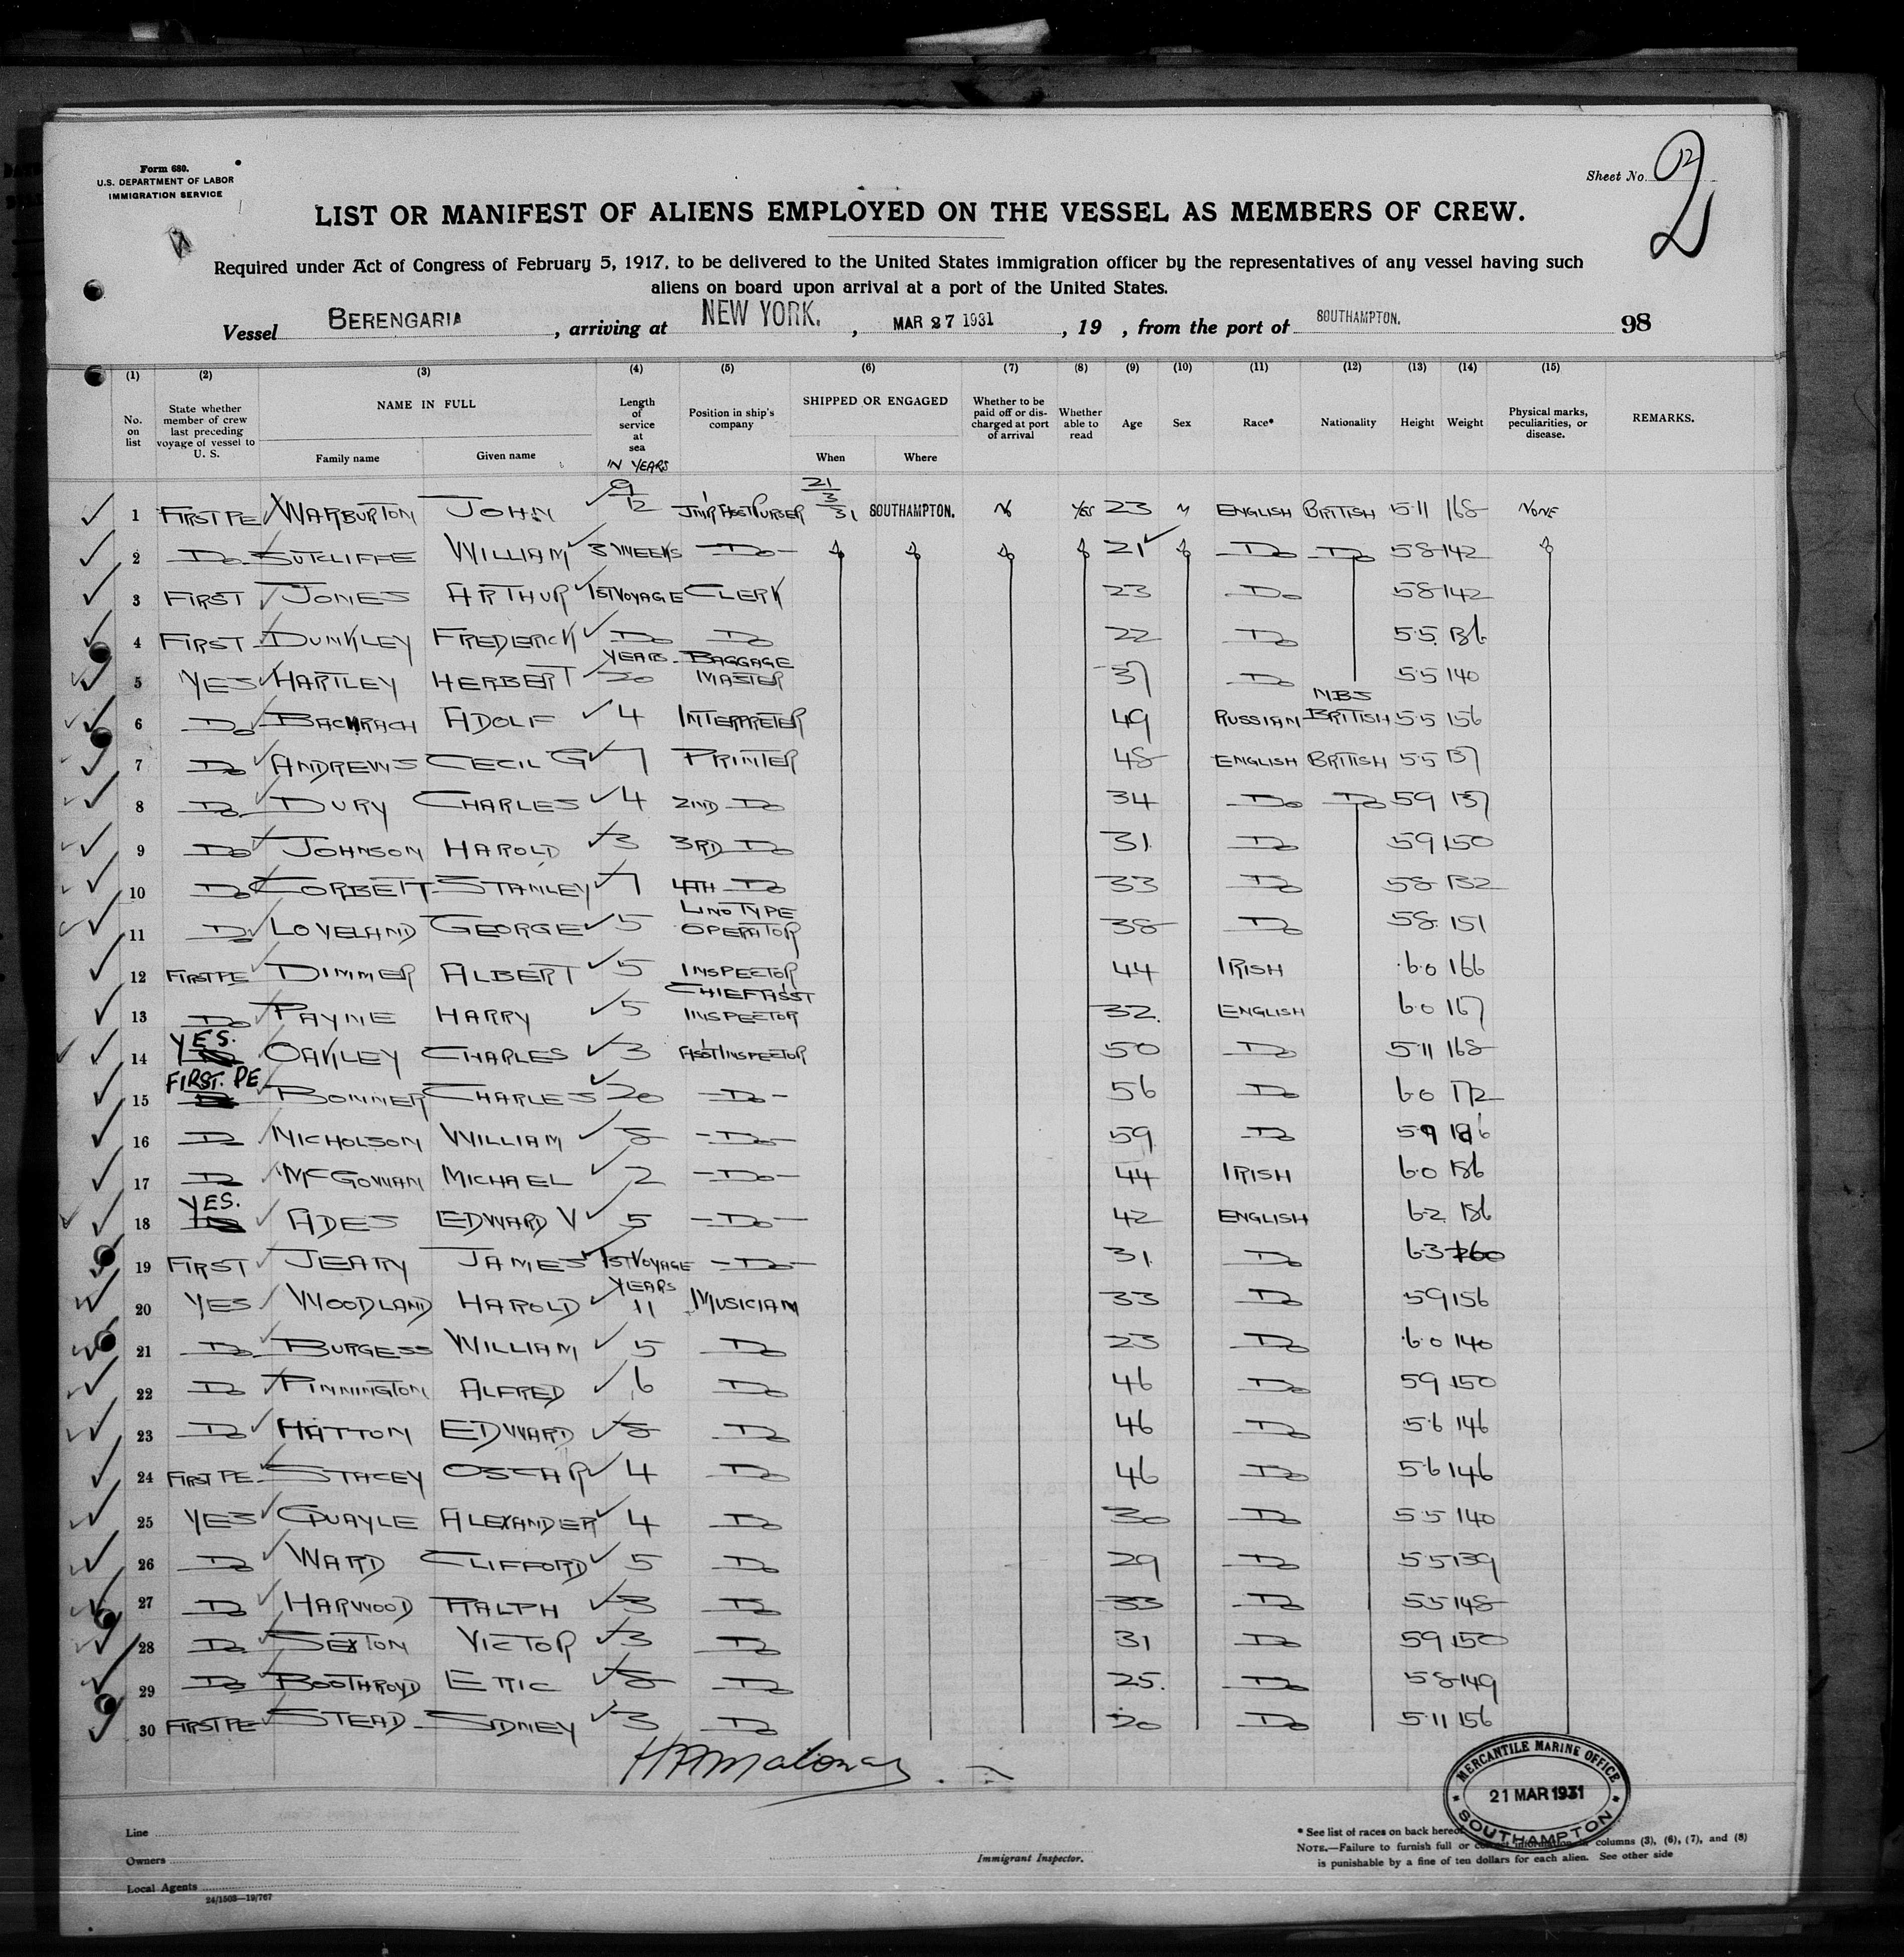 Form 680.
U.S. DEPARTMENT OF LABOR
IMMIGRATION SERVICE
Sheet No. 2
LIST OR MANIFEST OF ALIENS EMPLOYED ON THE VESSEL AS MEMBERS OF CREW.
Required under Act of Congress of February 5, 1917, to be delivered to the United States immigration officer by the representatives of any vessel having such
aliens on board upon arrival at a port of the United States.
Vessel BERENGARIA , arriving at NEW YORK. , MAR 27 1931 , 19 , from the port of SOUTHAMPTON. 98
(1) (2) (3) (4) (5) (6) (7) (8) (9) (10) (11) (12) (13) (14) (15)
No. on list State whether member of crew last preceding voyage of vessel to U. S. NAME IN FULL Family name Given name Length of service at sea IN YEARS Position in ship's company SHIPPED OR ENGAGED When Where Whether to be paid off or discharged at port of arrival Whether able to read Age Sex Race* Nationality Height Weight Physical marks, peculiarities, or disease. REMARKS.
1 FIRST PE WARBURTON JOHN 9/12 JNR ASST PURSER 21/3/31 SOUTHAMPTON. No YES 23 M ENGLISH BRITISH 5·11 168 NONE
2 Do SUTCLIFFE WILLIAM 3 WEEKS Do 21 Do Do 5 8 142
3 FIRST JONES ARTHUR 1ST VOYAGE CLERK 23 Do 5 8 142
4 FIRST DUNKLEY FREDERICK Do Do 22 Do 5·5 136
5 YES HARTLEY HERBERT YEARS 20 BAGGAGE MASTER 37 Do 5·5 140
6 Do BACHRACH ADOLF 4 INTERPRETER 49 RUSSIAN NBS BRITISH 5·5 156
7 Do ANDREWS CECIL G 7 PRINTER 48 ENGLISH BRITISH 5·5 137
8 Do DURY CHARLES 4 2ND Do 34 Do Do 5 9 137
9 Do JOHNSON HAROLD 3 3RD Do 31 Do 5 9 150
10 Do CORBETT STANLEY 7 4TH Do 33 Do 5 8 132
11 Do LOVELAND GEORGE 5 LINOTYPE OPERATOR 38 Do 5 8 151
12 FIRST PE DIMMER ALBERT 5 INSPECTOR 44 IRISH 6·0 166
13 Do PAYNE HARRY 5 CHIEF ASST INSPECTOR 32 ENGLISH 6·0 167
14 YES. OAKLEY CHARLES 3 ASST INSPECTOR 50 Do 5·11 168
15 FIRST. PE BONNER CHARLES 20 Do 56 Do 6·0 172
16 Do NICHOLSON WILLIAM 8 Do 59 Do 5 9
17 Do McGOWAN MICHAEL 2 Do 44 IRISH 6·0 186
18 YES. ADES EDWARD V 5 Do 42 ENGLISH 6·2 186
19 FIRST JEARY JAMES 1ST VOYAGE Do 31 Do 6·3
20 YES WOODLAND HAROLD YEARS 11 MUSICIAN 33 Do 5 9 156
21 Do BURGESS WILLIAM 5 Do 23 Do 6·0 140
22 Do PINNINGTON ALFRED 6 Do 46 Do 5 9 150
23 Do HATTON EDWARD 8 Do 46 Do 5·6 146
24 FIRST PE STACEY OSCAR 4 Do 46 Do 5·6 146
25 YES QUAYLE ALEXANDER 4 Do 30 Do 5·5 140
26 Do WARD CLIFFORD 5 Do 29 Do 5·5 139
27 Do HARWOOD RALPH 3 Do 33 Do 5·5 148
28 Do SEXTON VICTOR 3 Do 31 Do 5 9 150
29 Do BOOTHROYD ERIC 8 Do 25. Do 5 8 149
30 FIRST PE STEAD SIDNEY 3 Do 20 Do 5·11 156
MERCANTILE MARINE OFFICE
21 MAR 1931
SOUTHAMPTON
Line
Owners
Local Agents
24/1503—19/767
Immigrant Inspector.
* See list of races on back hereof
NOTE.—Failure to furnish full or correct information in columns (3), (6), (7), and (8)
is punishable by a fine of ten dollars for each alien. See other side